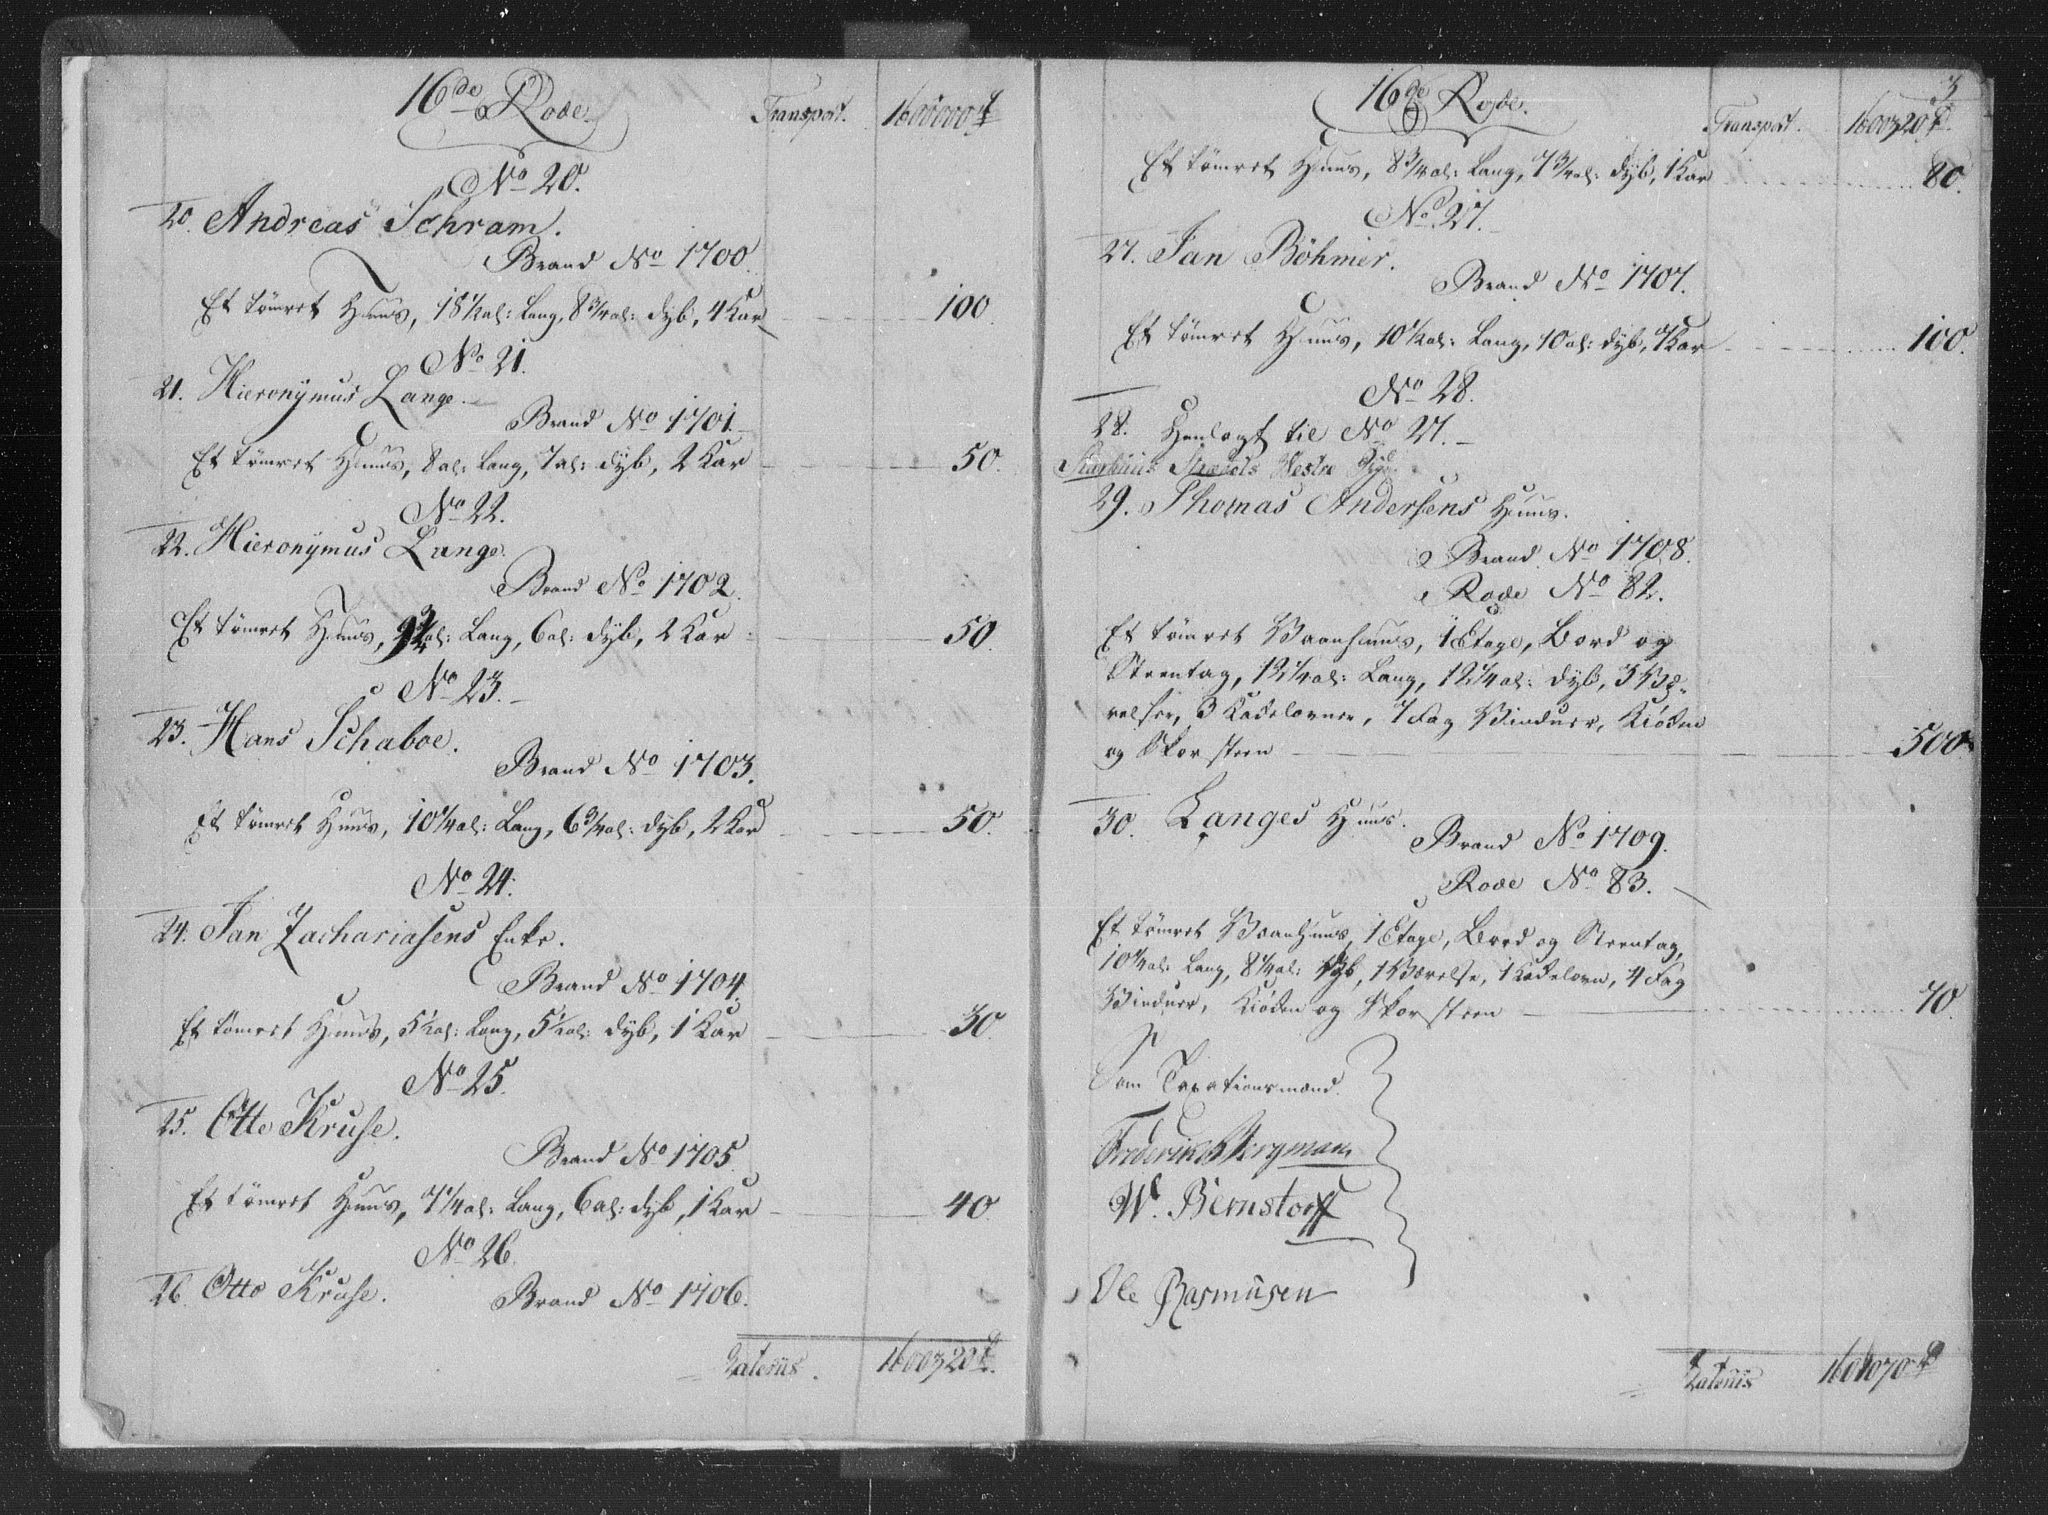 16de Rode.
Transport. 1600000
No 20.
20. Andreas Schram.
Brand No 1700.
Et tömret Huus, 18½ al: Lang, 8¾ al: dyb, 4 Kar 100.
No 21.
21. Hieronÿmus Lange.
Brand No 1701.
Et tömret Huus, 8 al: Lang, 7 al: dyb, 2 Kar 50.
No 22.
22. Hieronÿmus Lange.
Brand No 1702.
Et tömret Huus, al: Lang, 6 al: dyb, 2 Kar 50.
No 23.
23. Hans Schaboe.
Brand No 1703.
Et tömret Huus, 10¼ al: Lang, 6¾ al: dyb, 2 Kar 50.
No 24.
24. Jan Zachariasens Enke.
Brand No 1704.
Et tömret Huus, 5½ al: Lang, 5½ al: dyb, 1 Kar 30.
No 25.
25. Otto Kruse.
Brand No 1705.
Et tömret Huus, 7¼ al: Lang, 6 al: dyb, 1 Kar 40.
No 26.
26. Otto Kruse. Brand No 1706.
Laterus. 1600320
3
16de Rode.
Transport. 1600320
Et tömret Huus, 8¾ al: Lang, 7¾ al: dyb, 1 Kar 80.
No 27.
27. Jan Böhmer.
Brand No 1707.
Et tömret Huus, 10½ al: Lang, 10 al: dyb, 7 Kar 100.
No 28.
28. Henlagt til No 27.
Strædets Westre Side
29. Thomas Andersens Huus.
Brand No 1708.
Rode No 82.
Et tömret Vaanhuus, 1 Etage, Bord og
Steentag, 12¼ al: Lang, 12¼ al: dyb, 3 Væ-
relser, 3 Kakelovner, 7 Fag Vinduer, Kiökken
og Skorsteen 500.
30. Langes Huus.
Brand No 1709.
Rode No 83.
Et tömret Vaanhuus, 1 Etage, Bord og Steentag,
10¼ al: Lang, 8¼ al: dyb, 1 Værelse, 1 Kakelovn, 4 Fag
Vinduer, Kiökken og Skorsteen 70.
Som Taxationsmænd.
Frederik Bergman
W. Bernstorff
Ole Rasmusen
Laterus 1601070